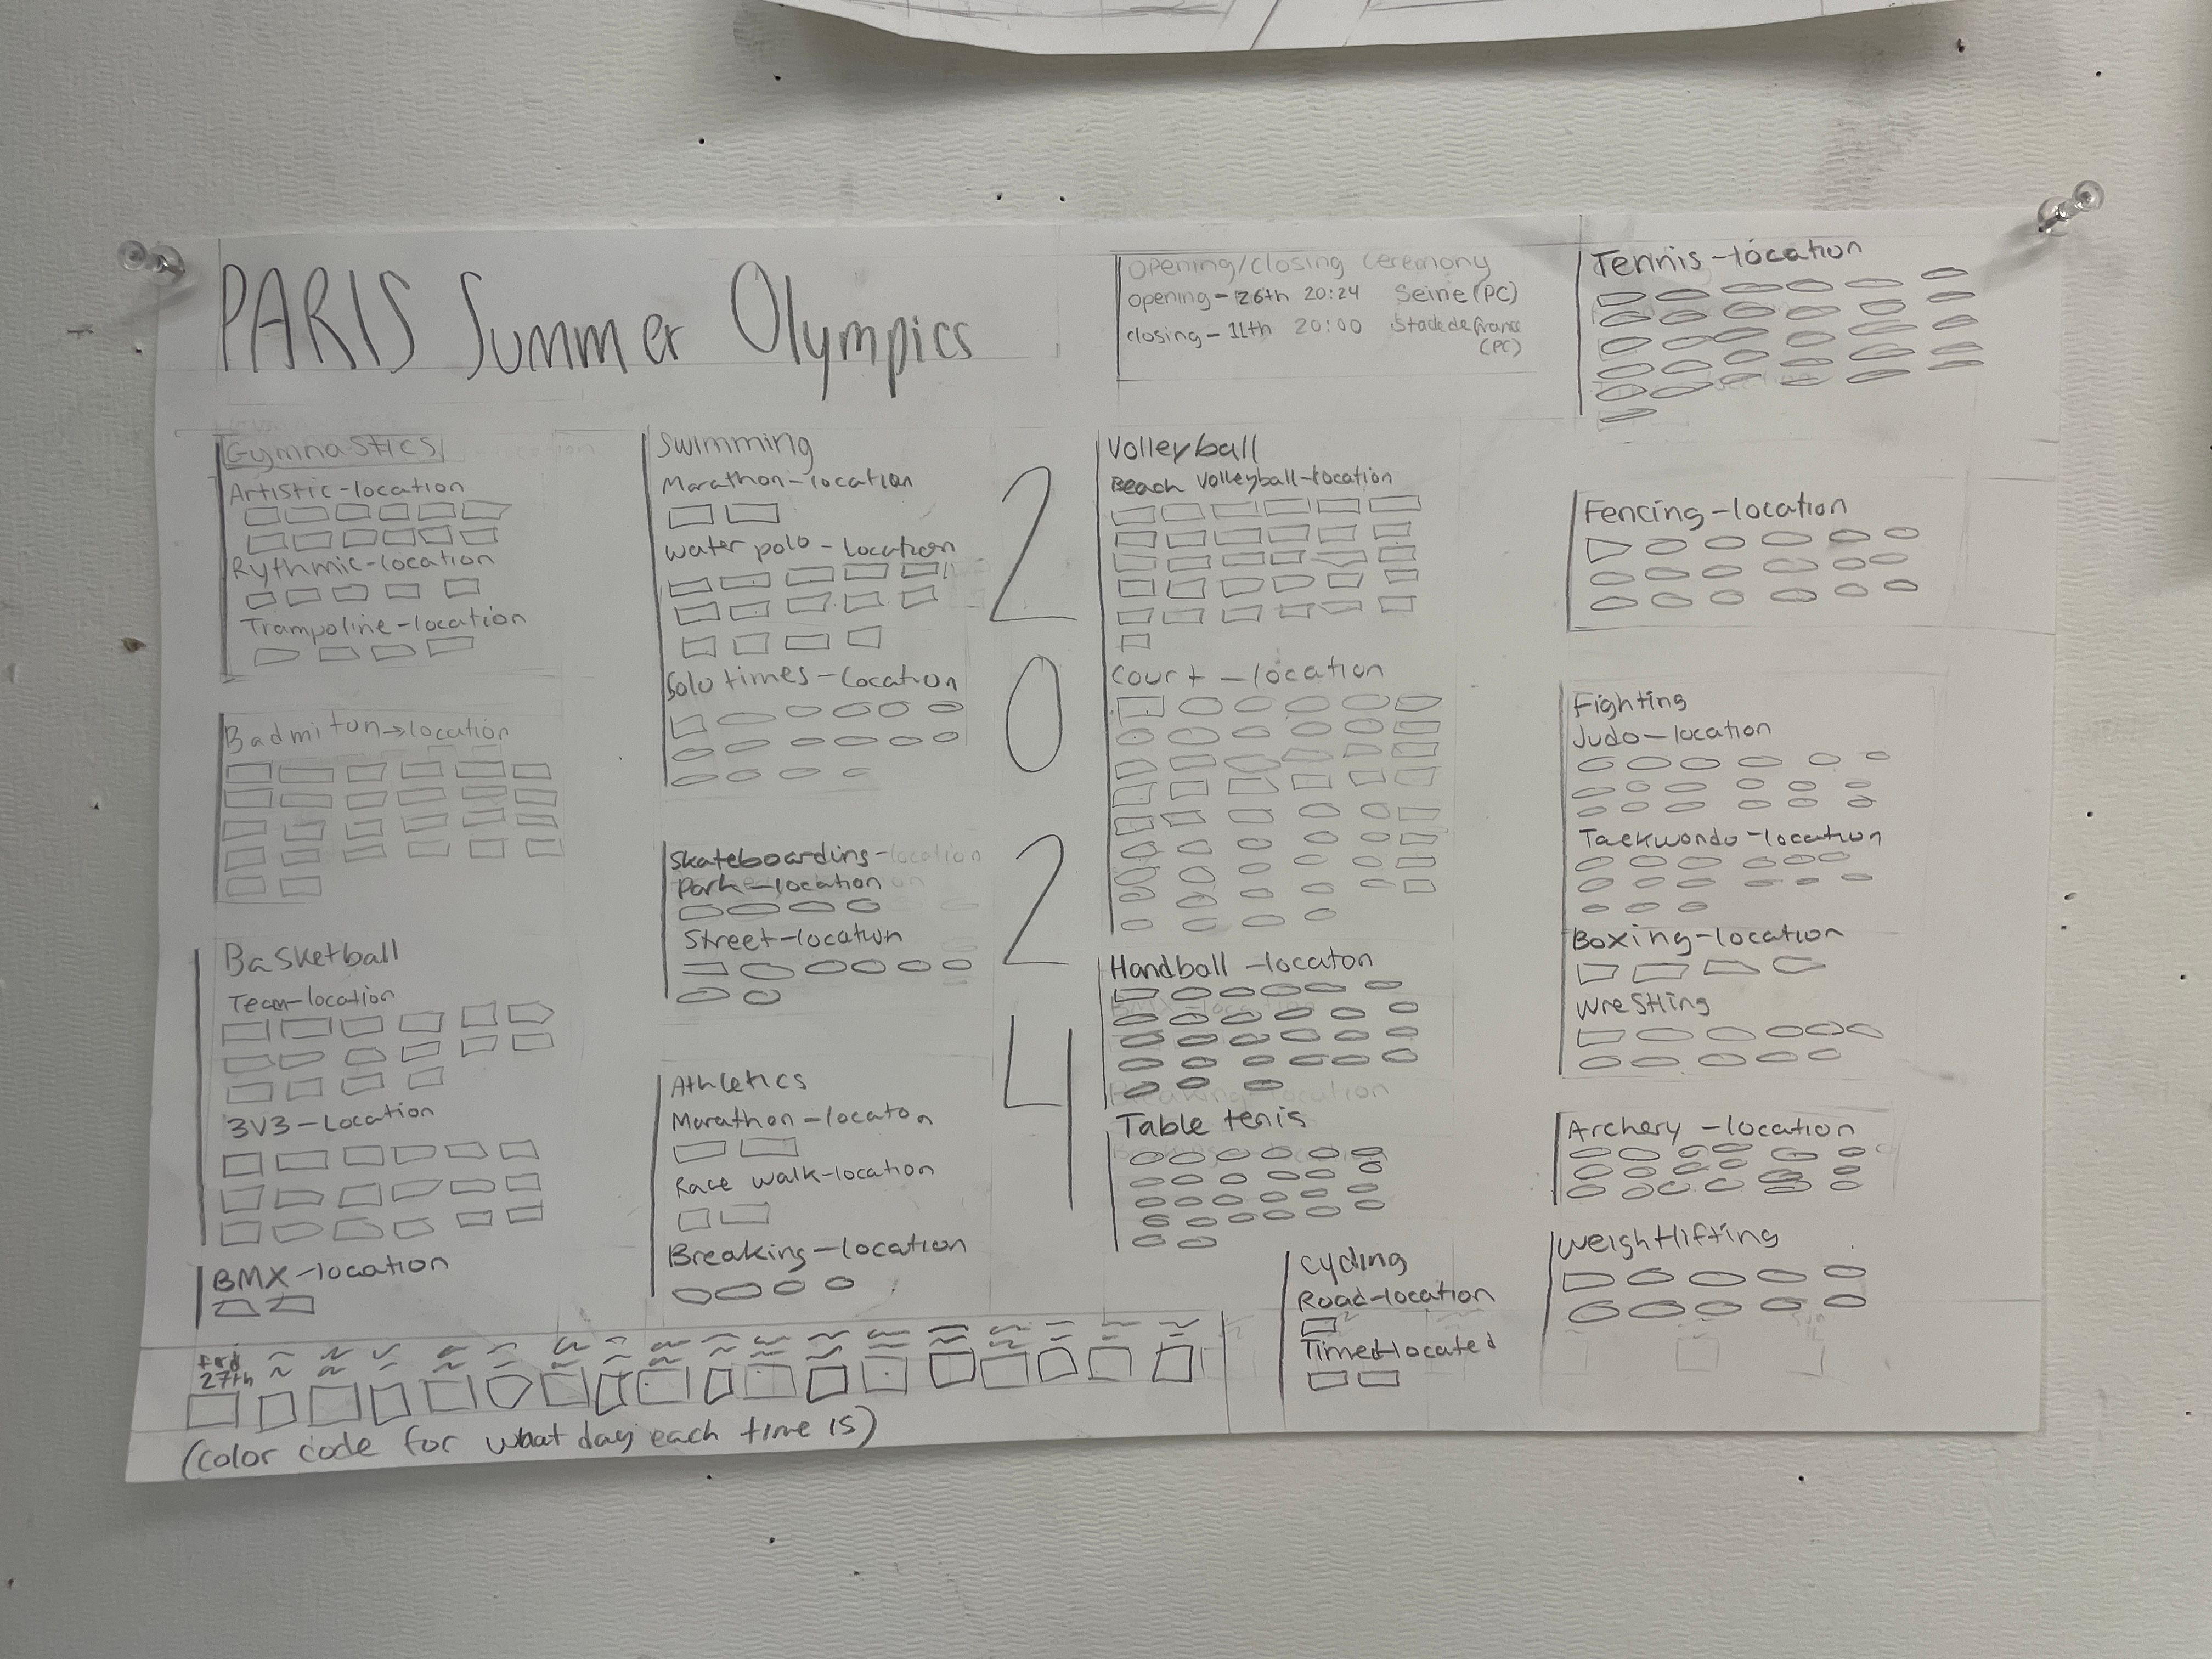 PARIS Summer Olympics
Opening/closing Ceremony
opening - 26th 20:24 Seine (PC)
closing - 11th 20:00 Stade de france
(PC)
Gymnastics
Artistic-location
Rythmic-location
Trampoline-location
Badmiton→location
Basketball
Team-location
3V3-Location
BMX-location
Swimming
Marathon-location
water polo - location
Solo times-Location
Skateboarding-location
Park-location
Street-location
Athletics
Marathon-locaton
Race walk-location
Breaking-location
2
0
2
4
Volleyball
Beach volleyball-location
Court-location
Handball-locaton
Table tenis
Cycling
Road-location
Timed-located
Tennis-location
Fencing-location
Fighting
Judo-location
Taekwondo-location
Boxing-location
Wrestling
Archery-location
Weightlifting
27th
(color code for what day each time is)